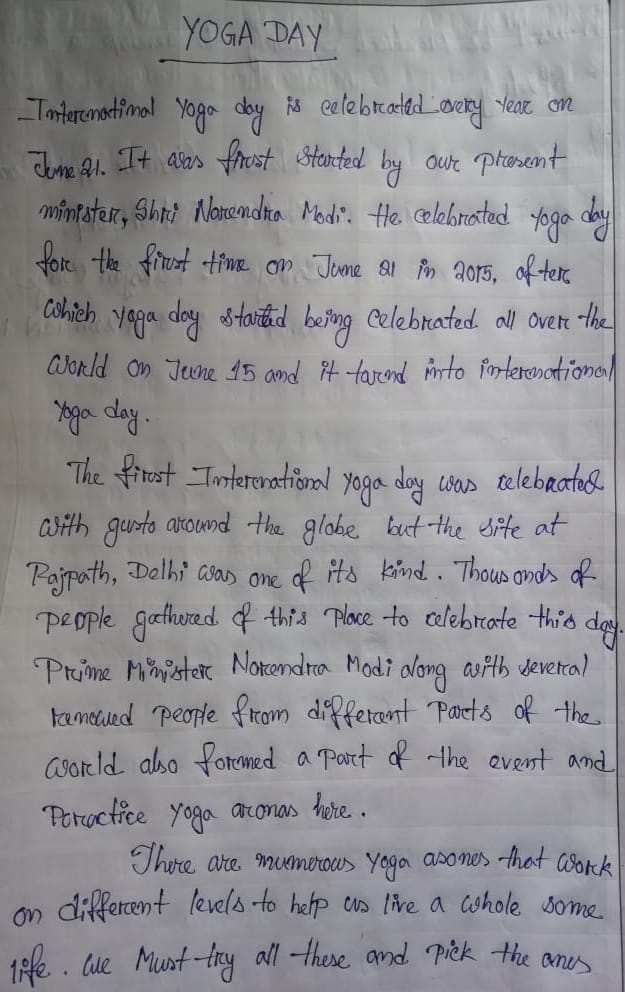 YOGA DAY
International Yoga day is celebrated every Year on
June 21. It was first started by our present
minister, Shri Narendra Modi. He celebrated yoga day
for the first time on June 21 in 2015, after
which yoga day started being celebrated all over the
world on June 15 and it tarnd into international
Yoga day.
The first International yoga day was celebrated
with gusto around the globe but the site at
Rajpath, Delhi was one of its kind. Thousands of
people gathered of this Place to celebrate this day.
Prime Minister Narendra Modi along with several
renowued people from different Parts of the
world also formed a part of the event and
Practice yoga aronas here.
There are numerous yoga asones that work
on different levels to help us live a whole some
life. We Must try all these and Pick the anes